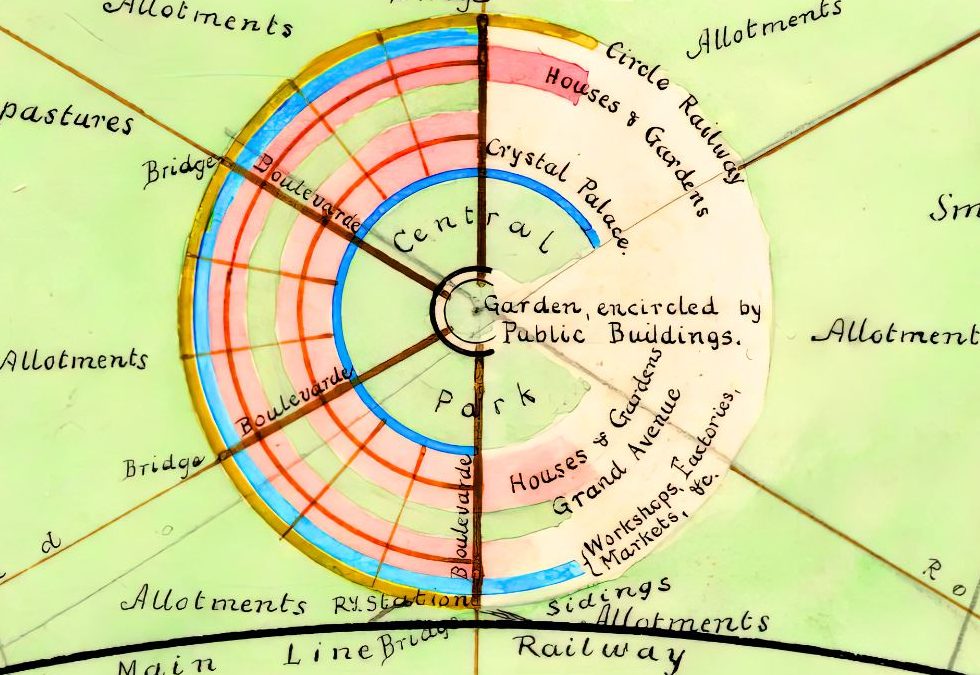 Allotments
Allotments
pastures
Circle Railway
Houses & Gardens
Bridge
Boulevarde
Crystal Palace.
Central
Sm
Garden, encircled by
Public Buildings.
Allotments
Allotment
Park
Boulevarde
Bridge
Boulevarde
Houses & Gardens
Grand Avenue
Workshops, Factories,
Markets, &c.
d
o
R o
Allotments
Ry. Station
Sidings
Allotments
Bridge
Main Line Railway